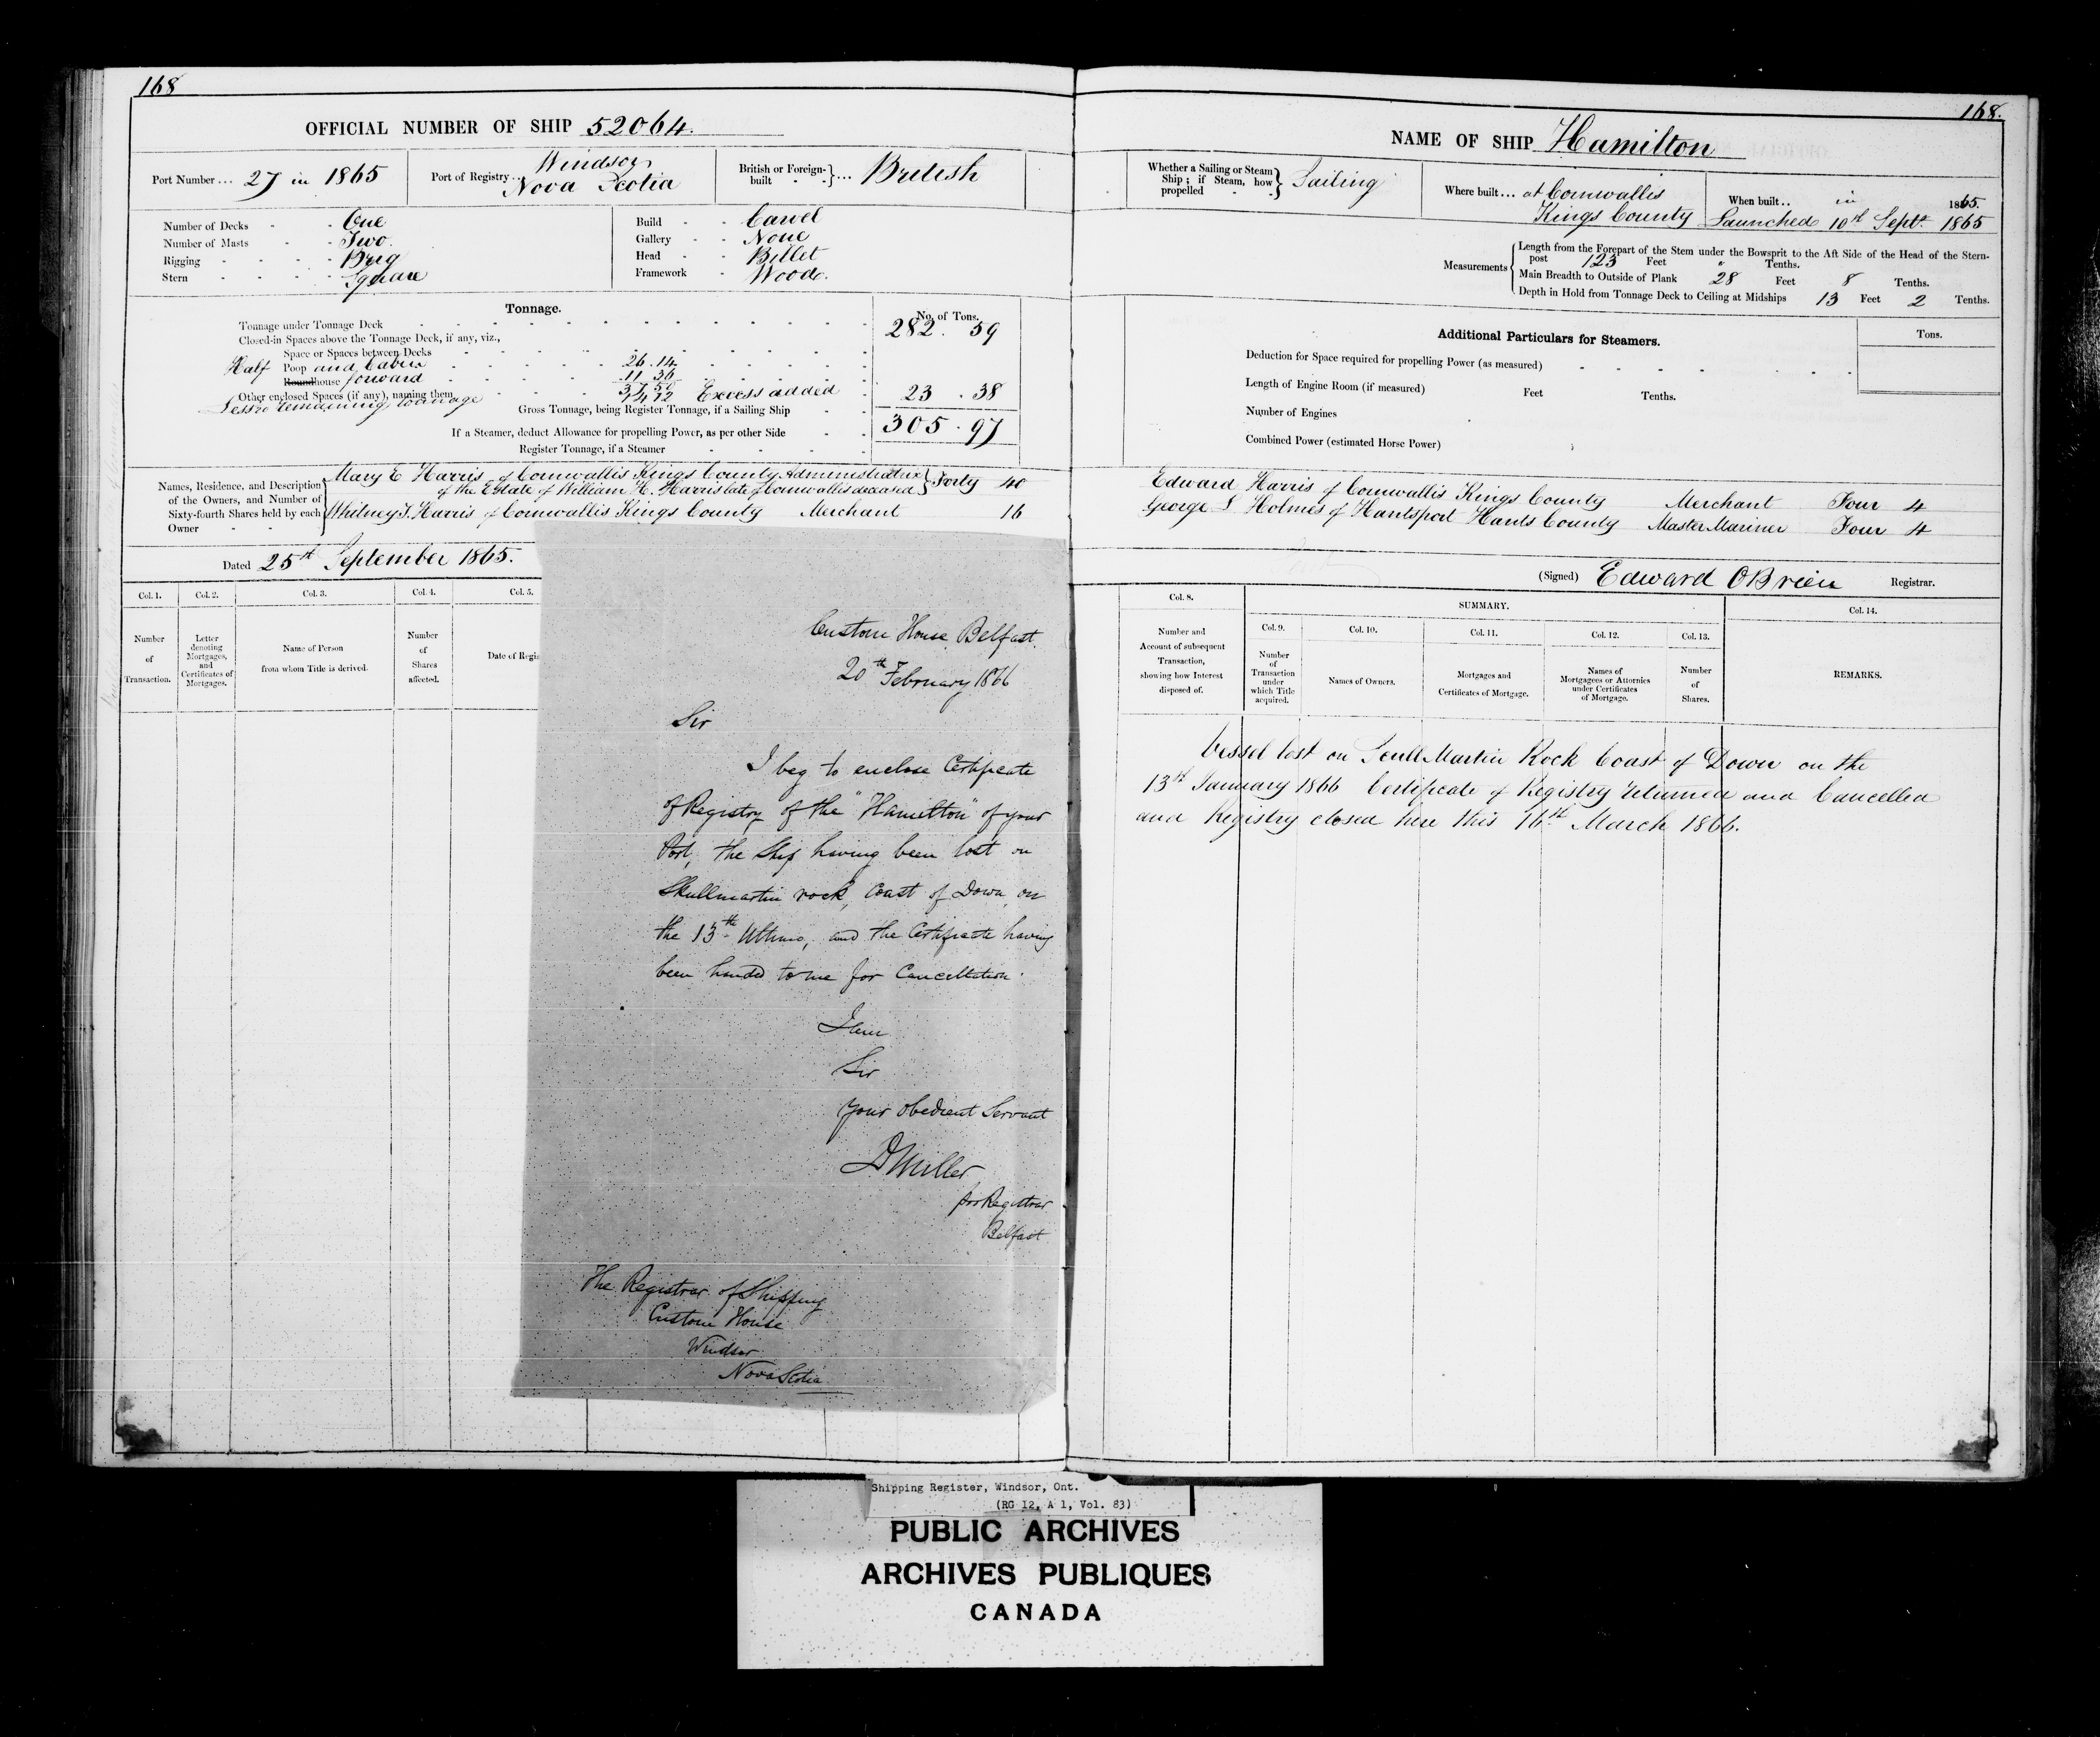 168
OFFICIAL NUMBER OF SHIP 52064.
Port Number ... 27 in 1865
Port of Registry .. Windsor Nova Scotia
British or Foreign-built } ... British
Number of Decks - - One
Number of Masts - - Two
Rigging - - - - Brig
Stern - - - - Square
Build - - Carvel
Gallery - - None
Head - - Billet
Framework - Wood.
Tonnage.
No. of Tons.
Tonnage under Tonnage Deck 282 . 59
Closed-in Spaces above the Tonnage Deck, if any, viz.,
Space or Spaces between Decks
Half Poop and Cabin 26.14
Roundhouse forward 11 36
Other enclosed Spaces (if any), naming them 37 50 Excess added 23 . 38
Less remaining tonnage 14 12
Gross Tonnage, being Register Tonnage, if a Sailing Ship 305 . 97
If a Steamer, deduct Allowance for propelling Power, as per other Side
Register Tonnage, if a Steamer
Names, Residence, and Description of the Owners, and Number of Sixty-fourth Shares held by each Owner
Mary E Harris of Cornwallis Kings County Administratrix
of the Estate of William H. Harris late of Cornwallis deceased } Forty 40
Whitney T. Harris of Cornwallis Kings County Merchant 16
Dated 25th September 1865.
Col. 1. Col. 2. Col. 3. Col. 4. Col. 5.
Number of Transaction.
Letter denoting Mortgages, and Certificates of Mortgages.
Name of Person from whom Title is derived.
Number of Shares affected.
Date of Regis
Custom House Belfast.
20th February 1866
Sir
I beg to enclose Certificate
of Registry of the "Hamilton" of your
Port, the Ship having been lost on
Skullmartin rock, Coast of Down, on
the 13th Ultimo, and the Certificate having
been handed to me for Cancellation.
I am
Sir
Your obedient Servant
D Miller
for Registrar
Belfast
The Registrar of Shipping
Custom House
Windsor
Nova Scotia
168.
NAME OF SHIP Hamilton
Whether a Sailing or Steam Ship; if Steam, how propelled } Sailing
Where built ... at Cornwallis Kings County
When built .. in 1865.
Launched 10th Septr. 1865
Measurements
Length from the Forepart of the Stem under the Bowsprit to the Aft Side of the Head of the Stern-
post 123 Feet " Tenths.
Main Breadth to Outside of Plank 28 Feet 8 Tenths.
Depth in Hold from Tonnage Deck to Ceiling at Midships 13 Feet 2 Tenths.
Additional Particulars for Steamers.
Tons.
Deduction for Space required for propelling Power (as measured)
Length of Engine Room (if measured) Feet Tenths.
Number of Engines
Combined Power (estimated Horse Power)
Edward Harris of Cornwallis Kings County Merchant Four 4
George S Holmes of Hantsport Hants County Master Mariner Four 4
(Signed) Edward OBrien Registrar.
Col. 8.
Number and Account of subsequent Transaction, showing how Interest disposed of.
SUMMARY.
Col. 9. Col. 10. Col. 11. Col. 12. Col. 13. Col. 14.
Number of Transaction under which Title acquired.
Names of Owners.
Mortgages and Certificates of Mortgage.
Names of Mortgagees or Attornies under Certificates of Mortgage.
Number of Shares.
REMARKS.
Vessel lost on Scull Martin Rock Coast of Down on the
13th January 1866 Certificate of Registry returned and Cancelled
and Registry closed here this 16th March 1866.
Shipping Register, Windsor, Ont.
(RG 12, A 1, Vol. 83)
PUBLIC ARCHIVES
ARCHIVES PUBLIQUES
CANADA